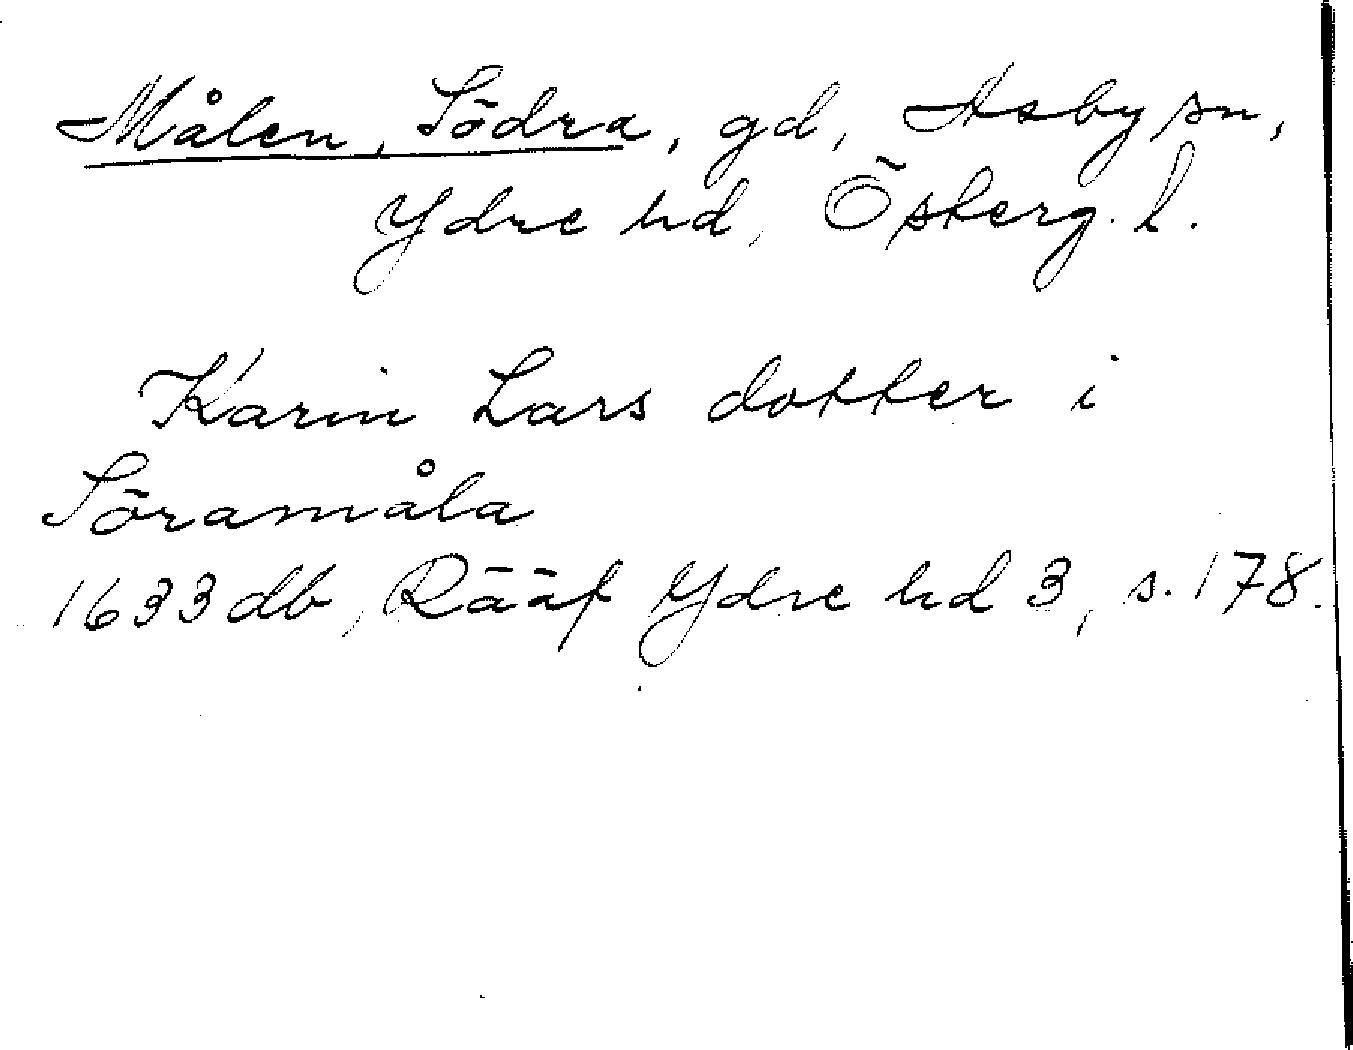 Målen, Södra, gd, Asby sn,
Ydre hd, Österg. l.
Karin Lars dotter i
Söramåla
1633 db, Rääf Ydre hd 3, s. 178.